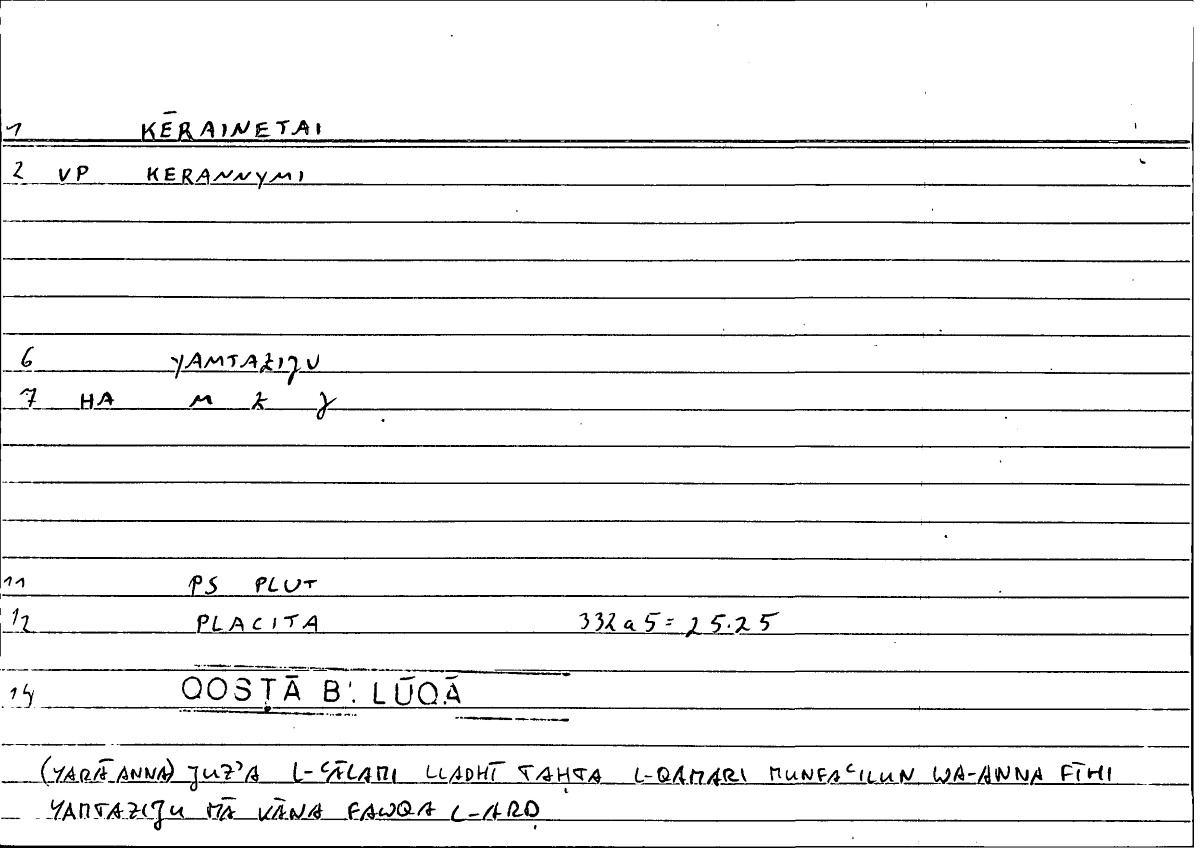 1 KĒRAINETAI
2 VP KERANNYMI
6 YAMTAZIJU
7 HA M Z J
11 PS PLUT
12 PLACITA 332a5=25.25
14 QOSṬĀ B. LŪQĀ
(YARĀ ANNA) JUZʾA L-ʿĀLAMI LLADHĪ TAḤTA L-QAMARI MUNFAʿILUN WA-ANNA FĪHI
YAMTAZIJU MĀ KĀNA FAWQA L-ARḌ